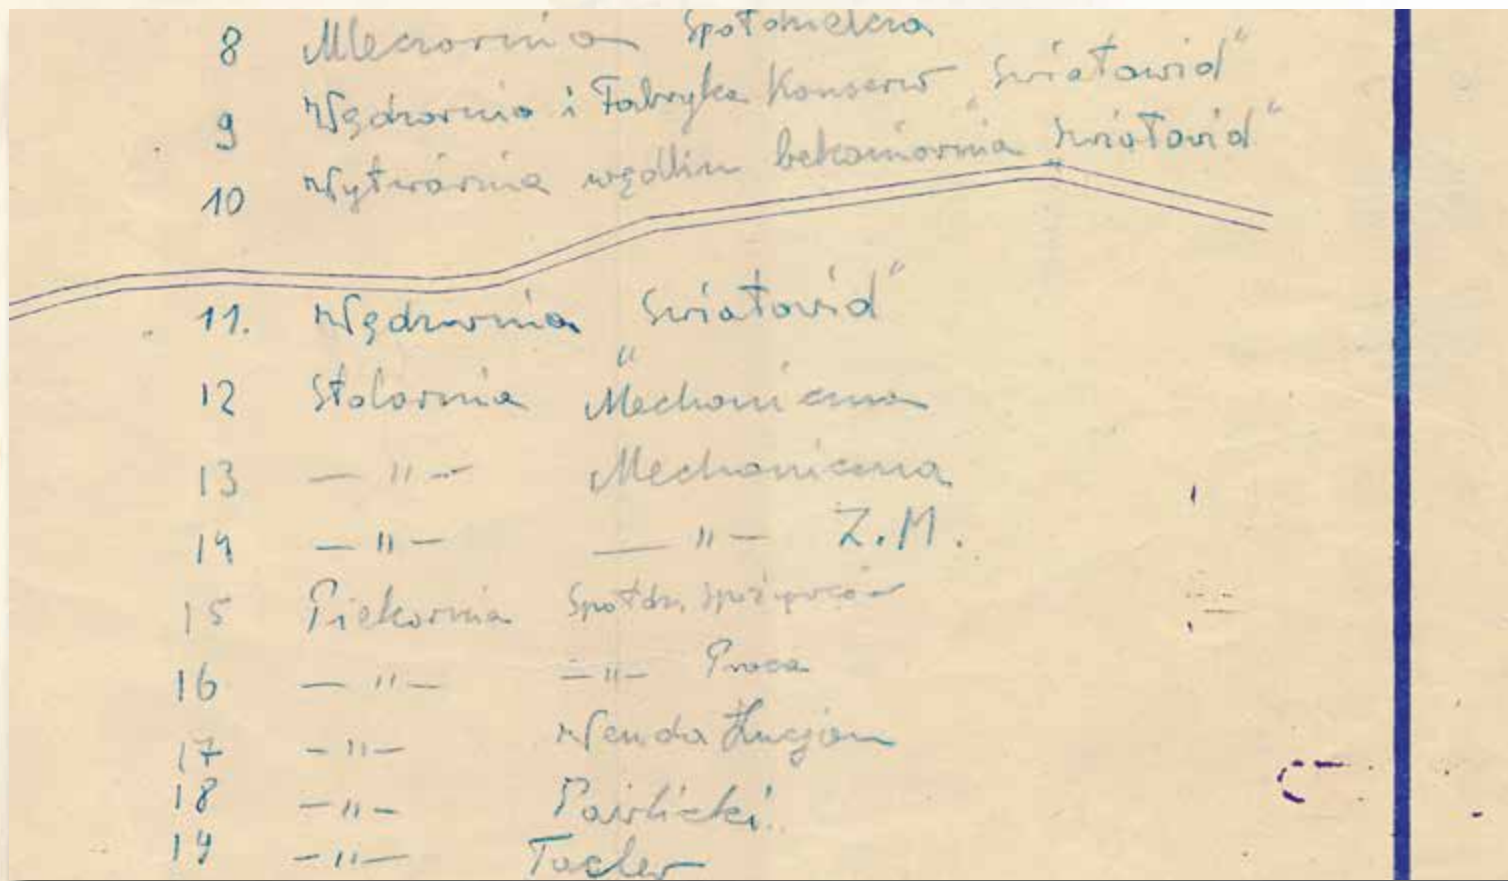 8 Mleczarnia Spółdzielcza
9 Wędzarnia i Fabryka Konserw „Światowid"
10 Wytwórnia wędlin bekoniarnia „Światowid"
11. Wędzarnia „Światowid"
12 Stolarnia Mechaniczna
13 — " — Mechaniczna
14 — " — — " — Z.M.
15 Piekarnia Spółdz. spożywców
16 — " — — " — Praca
17 — " — Wenda Lucjan
18 — " — Pawlicki
19 — " —